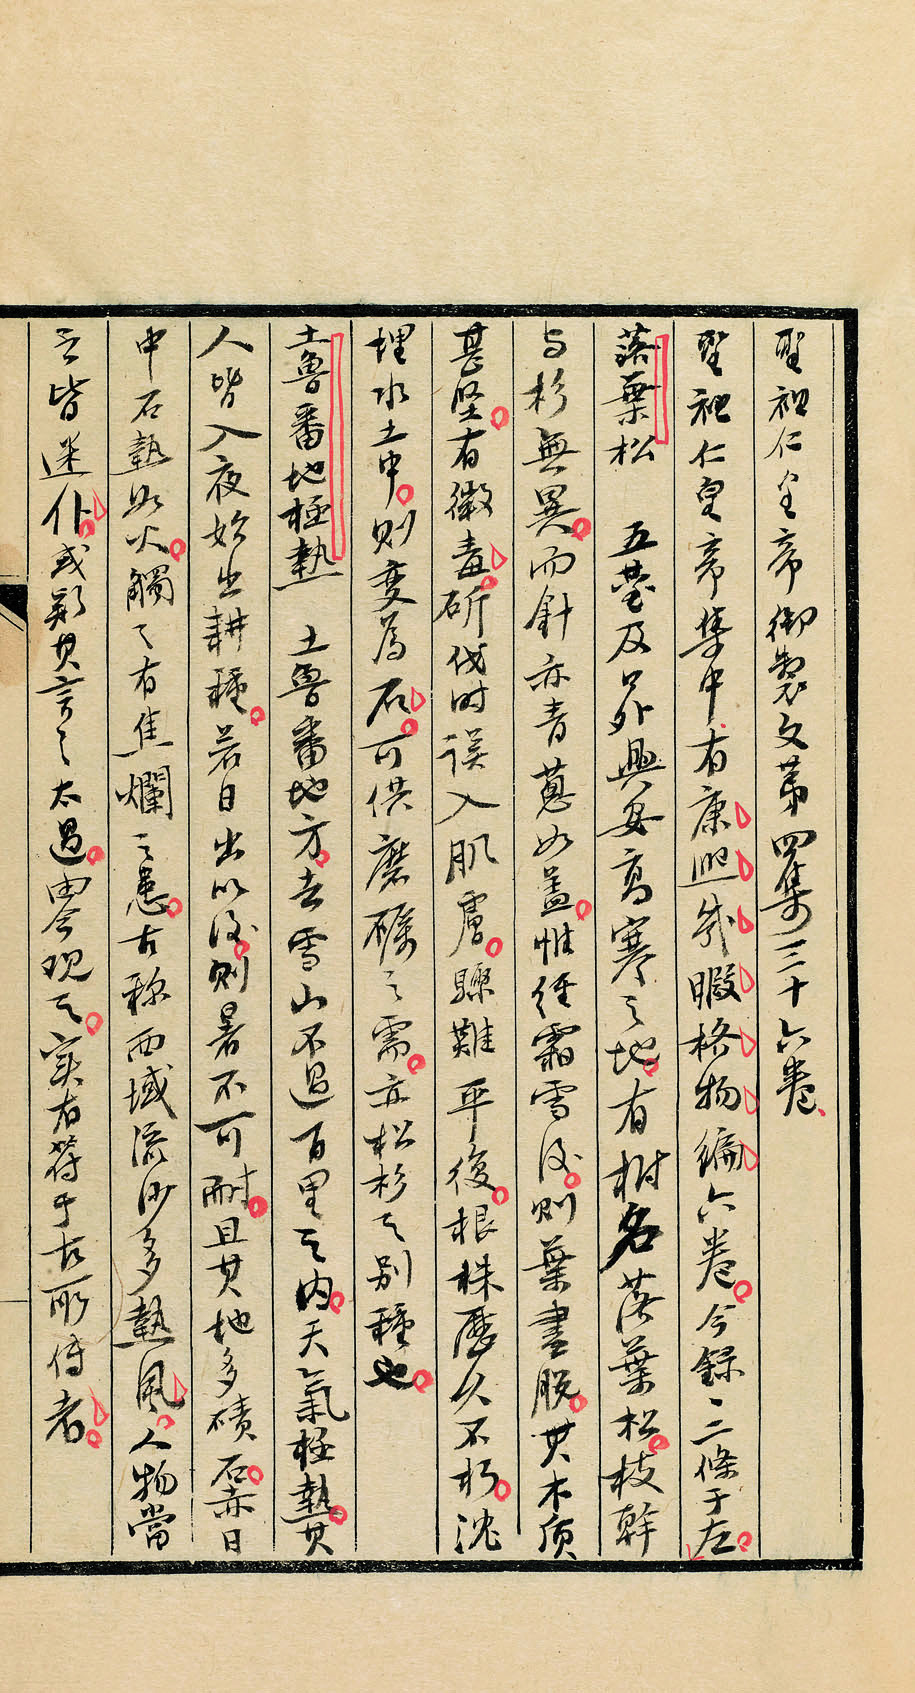 聖祖仁皇帝御製文第四集三十六卷
聖祖仁皇帝集中有康熙幾暇格物編六卷今録一二條于左
落葉松　五臺及口外興安高寒之地有樹名落葉松枝幹
与杉無異而針亦青蔥如蓋惟經霜雪後則葉盡脫其木质
甚堅有微毒斫伐时误入肌膚驟難平復根株歷久不朽沈
埋水土中則变為石可供磨礪之需亦松杉之别種也
土魯番地極熱　土魯番地方去雪山不過百里之内天氣極熱其
人皆入夜始出耕種若日出以後則暑不可耐且其地多磧石赤日
中石熱如火觸之有焦爛之患古称西域流沙多熱風人物當
之皆迷仆或疑其言之太過由今观之実有符于古所传者